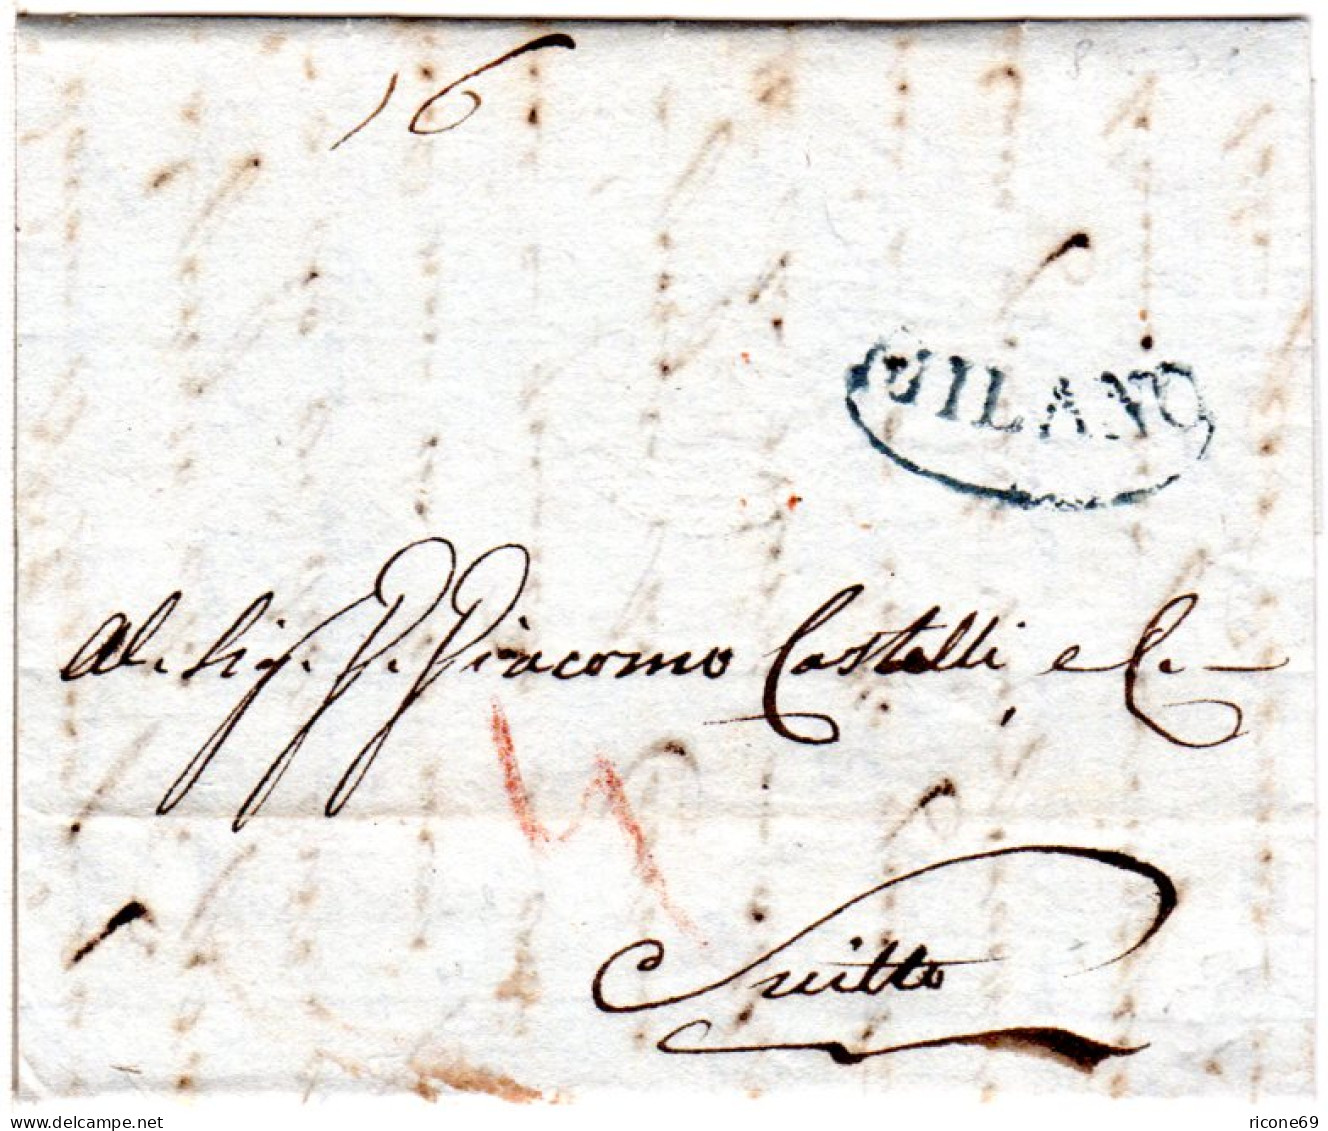 16
MILANO
Al. Sig. P. Giacomo Castelli, e C.
4
Suitto
www.delcampe.net
ricone69